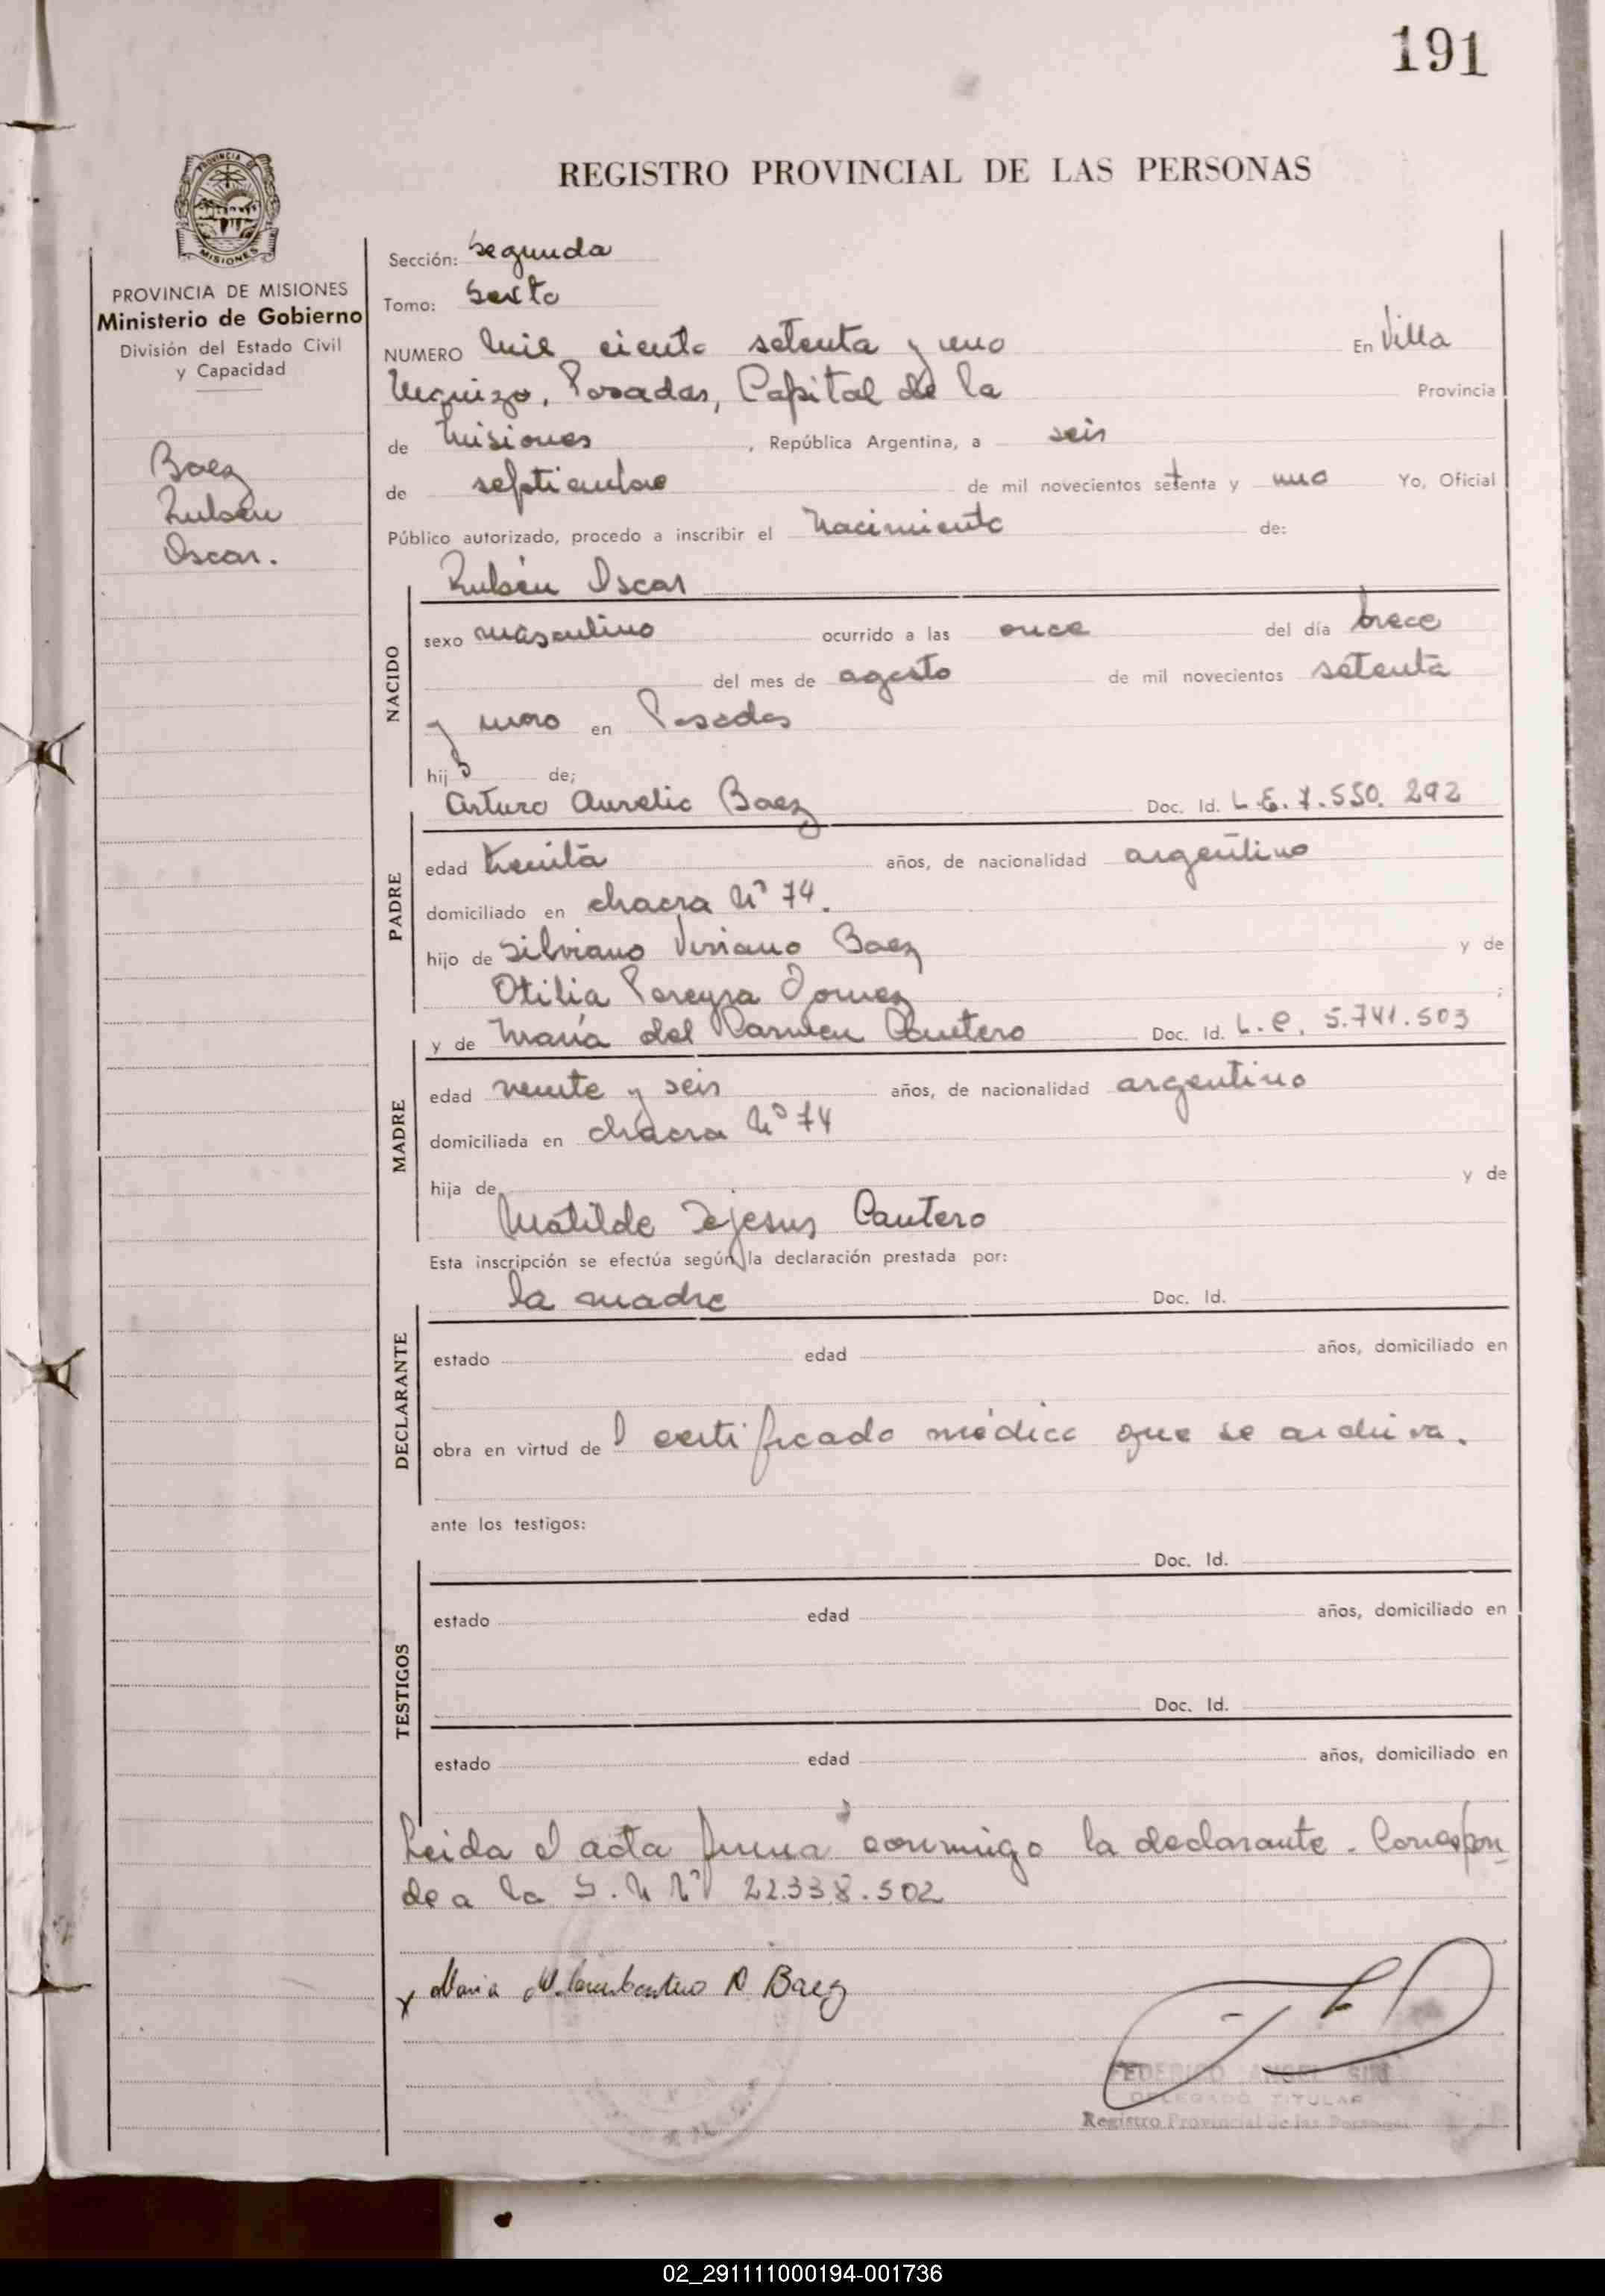 191
REGISTRO PROVINCIAL DE LAS PERSONAS
PROVINCIA DE
MISIONES
PROVINCIA DE MISIONES
Ministerio de Gobierno
División del Estado Civil
y Capacidad
Baez
Rubén
Oscar.
Sección: Segunda
Tomo: Sexto
NUMERO mil ciento setenta y uno En Villa
Urquiza, Posadas, Capital de la Provincia
de Misiones, República Argentina, a seis
de septiembre de mil novecientos setenta y uno Yo, Oficial
Público autorizado, procedo a inscribir el nacimiento de:
Rubén Oscar
NACIDO
sexo masculino ocurrido a las once del día trece
del mes de agosto de mil novecientos setenta
y uno en Posadas
hijo de;
Arturo Aurelio Baez Doc. Id. L.E. 7.550.292
PADRE
edad treinta años, de nacionalidad argentino
domiciliado en chacra Nº 74.
hijo de Silviano Viriano Baez y de
Otilia Pereyra Gomez;
y de María del Carmen Cantero Doc. Id. L.C. 5.741.503
MADRE
edad veinte y seis años, de nacionalidad argentino
domiciliada en chacra Nº 74
hija de y de
Matilde Dejesus Cantero
Esta inscripción se efectúa según la declaración prestada por:
la madre Doc. Id.
DECLARANTE
estado edad años, domiciliado en
obra en virtud del certificado médico que se archiva.
ante los testigos:
Doc. Id.
TESTIGOS
estado edad años, domiciliado en
Doc. Id.
estado edad años, domiciliado en
Leida el acta firma conmigo la declarante. Correspon
de a la S.N Nº 22.338.502
x Maria D. Baez
FEDERICO ANGEL
DELEGADO TITULAR
Registro Provincial de las Personas
02_291111000194-001736